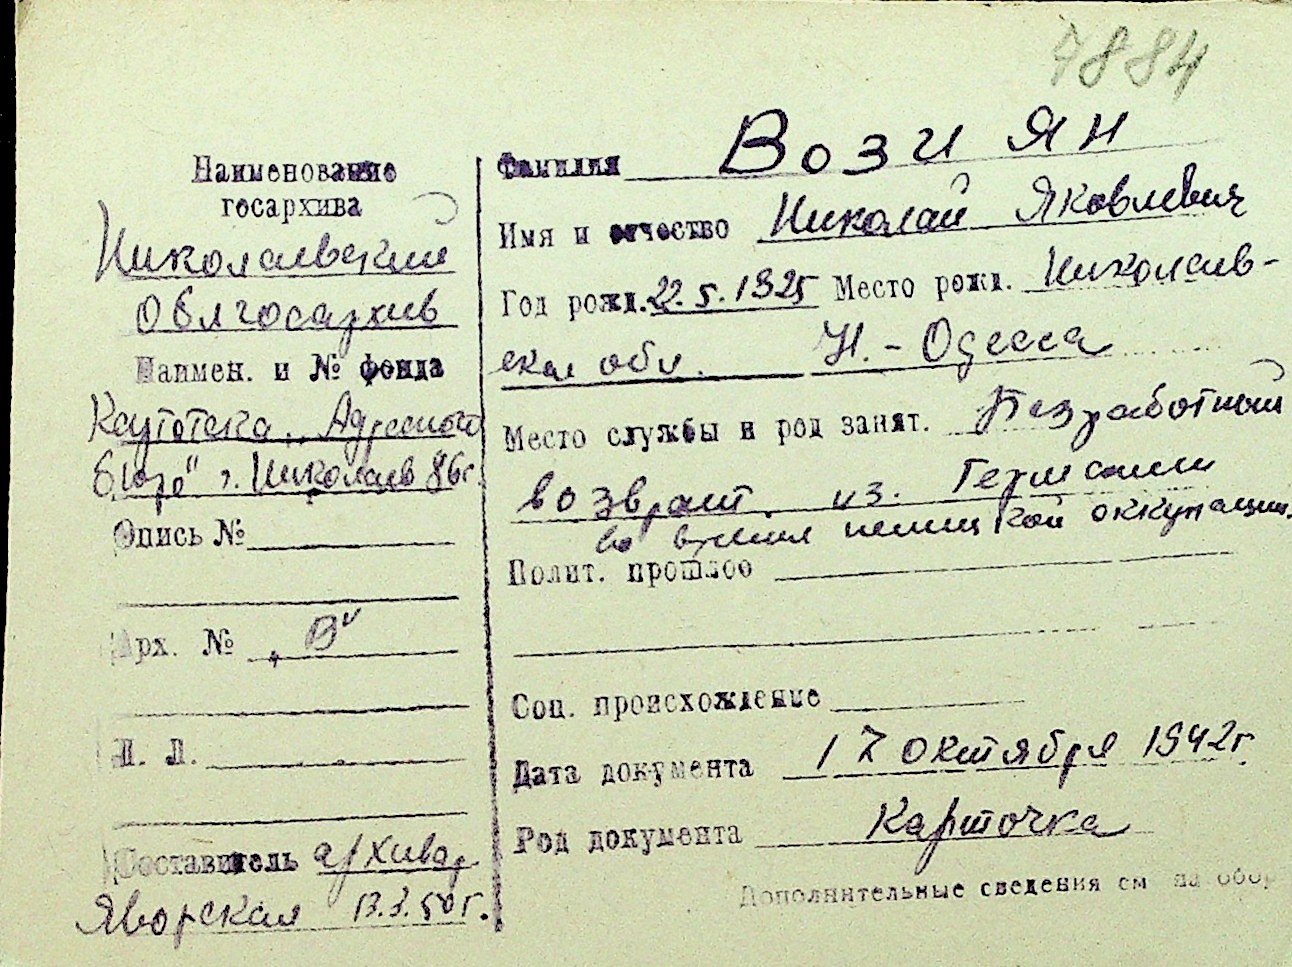 7884
Наименование
госархива
Николаевский
облгосархив
Наимен. и № фонда
Картотека „Адресного
бюро" г. Николаев 86г.
Опись №
Арх. № „В"
Л. Л.
Составитель архивар
Яворская 13.3.50г.
Фамилия Возиян
Имя и отчество Николай Яковлевич
Год рожд. 22.5.1925 Место рожд. Николаев-
ская обл. Н.-Одесса
Место службы и род занят. Безработный
возврат. из. Германии
во время немецкой оккупации.
Полит. прошлое
Соц. происхождение
Дата документа 17 октября 1942г
Род документа Карточка
Дополнительные сведения см на обор